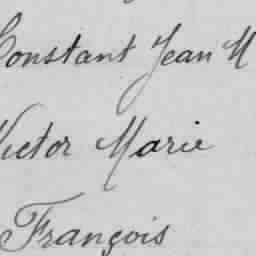 Constant Jean M
Victor Marie
François